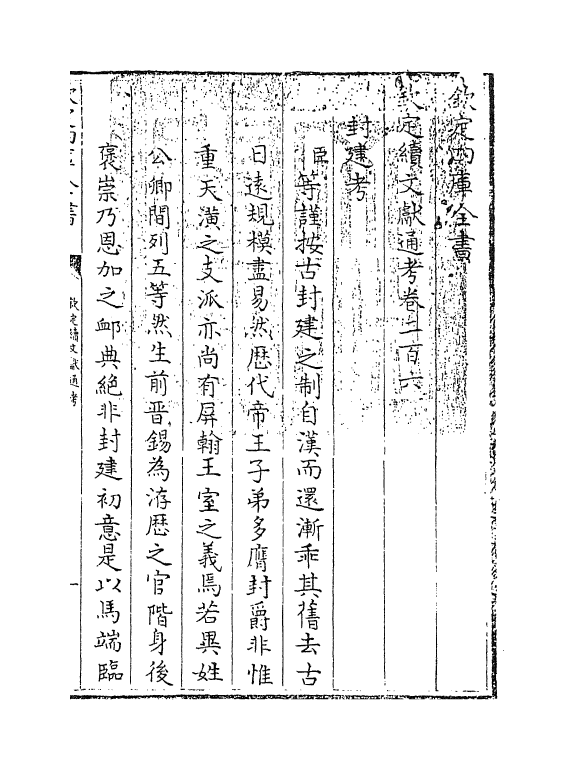 欽定四庫全書
欽定續文獻通考卷二百六
封建考
臣等謹按古封建之制自漢而還漸乖其舊去古
日遠規模盡易然歴代帝王子弟多膺封爵非惟
重天潢之支派亦尚有屏翰王室之義焉若異姓
公卿間列五等然生前晋錫為游歴之官階身後
褒崇乃恩加之卹典絶非封建初意是以馬端臨
欽定四庫全書
欽定續文獻通考
一